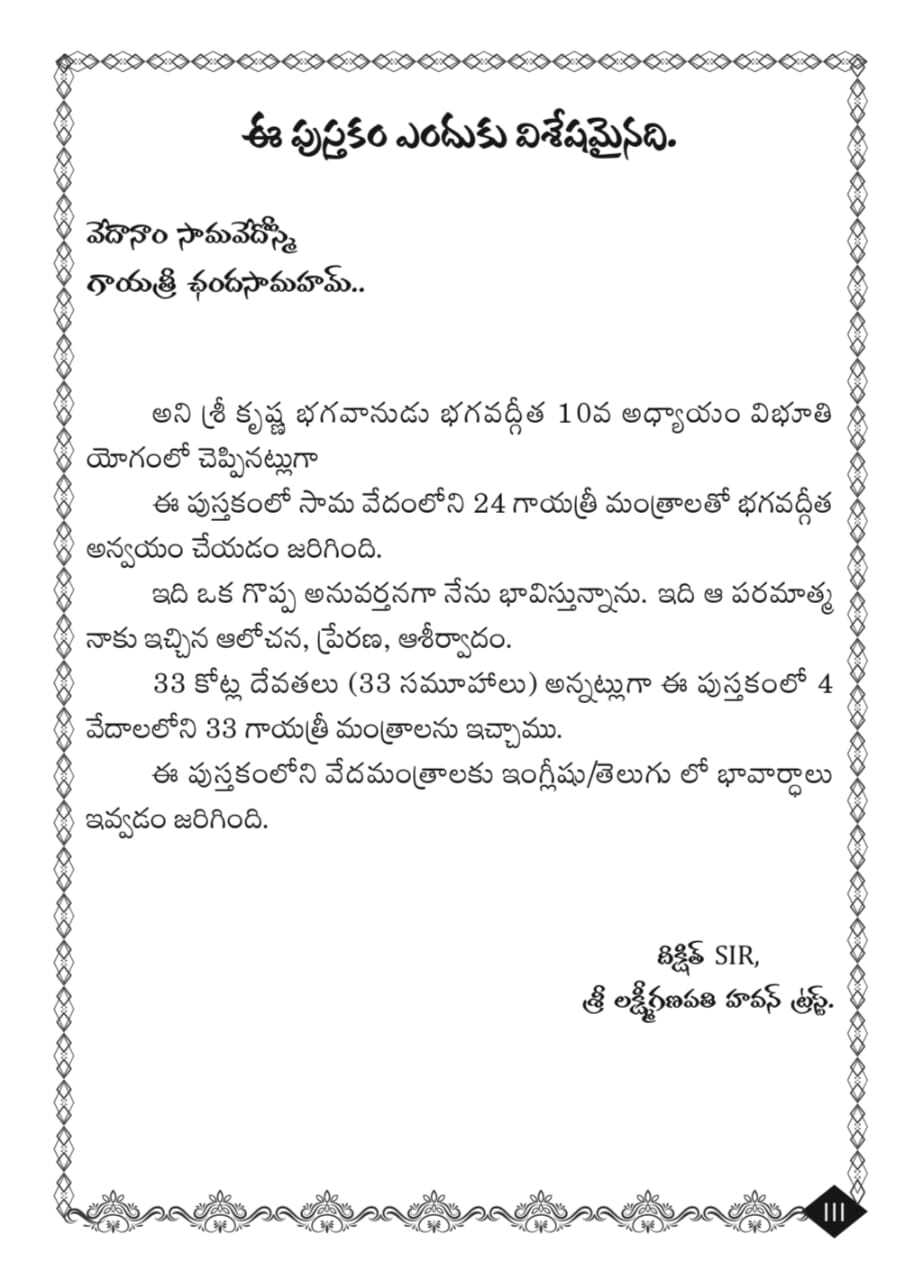 ఈ పుస్తకం ఎందుకు విశేషమైనది.
వేదానాం సామవేదోస్మి
గాయత్రీ ఛందసామహమ్..
అని శ్రీ కృష్ణ భగవానుడు భగవద్గీత 10వ అధ్యాయం విభూతి
యోగంలో చెప్పినట్లుగా
ఈ పుస్తకంలో సామ వేదంలోని 24 గాయత్రీ మంత్రాలతో భగవద్గీత
అన్వయం చేయడం జరిగింది.
ఇది ఒక గొప్ప అనువర్తనగా నేను భావిస్తున్నాను. ఇది ఆ పరమాత్మ
నాకు ఇచ్చిన ఆలోచన, ప్రేరణ, ఆశీర్వాదం.
33 కోట్ల దేవతలు (33 సమూహాలు) అన్నట్లుగా ఈ పుస్తకంలో 4
వేదాలలోని 33 గాయత్రీ మంత్రాలను ఇచ్చాము.
ఈ పుస్తకంలోని వేదమంత్రాలకు ఇంగ్లీషు/తెలుగు లో భావార్థాలు
ఇవ్వడం జరిగింది.
దిక్షిత్ SIR,
శ్రీ లక్ష్మీగణపతి హవన్ ట్రస్ట్.
III